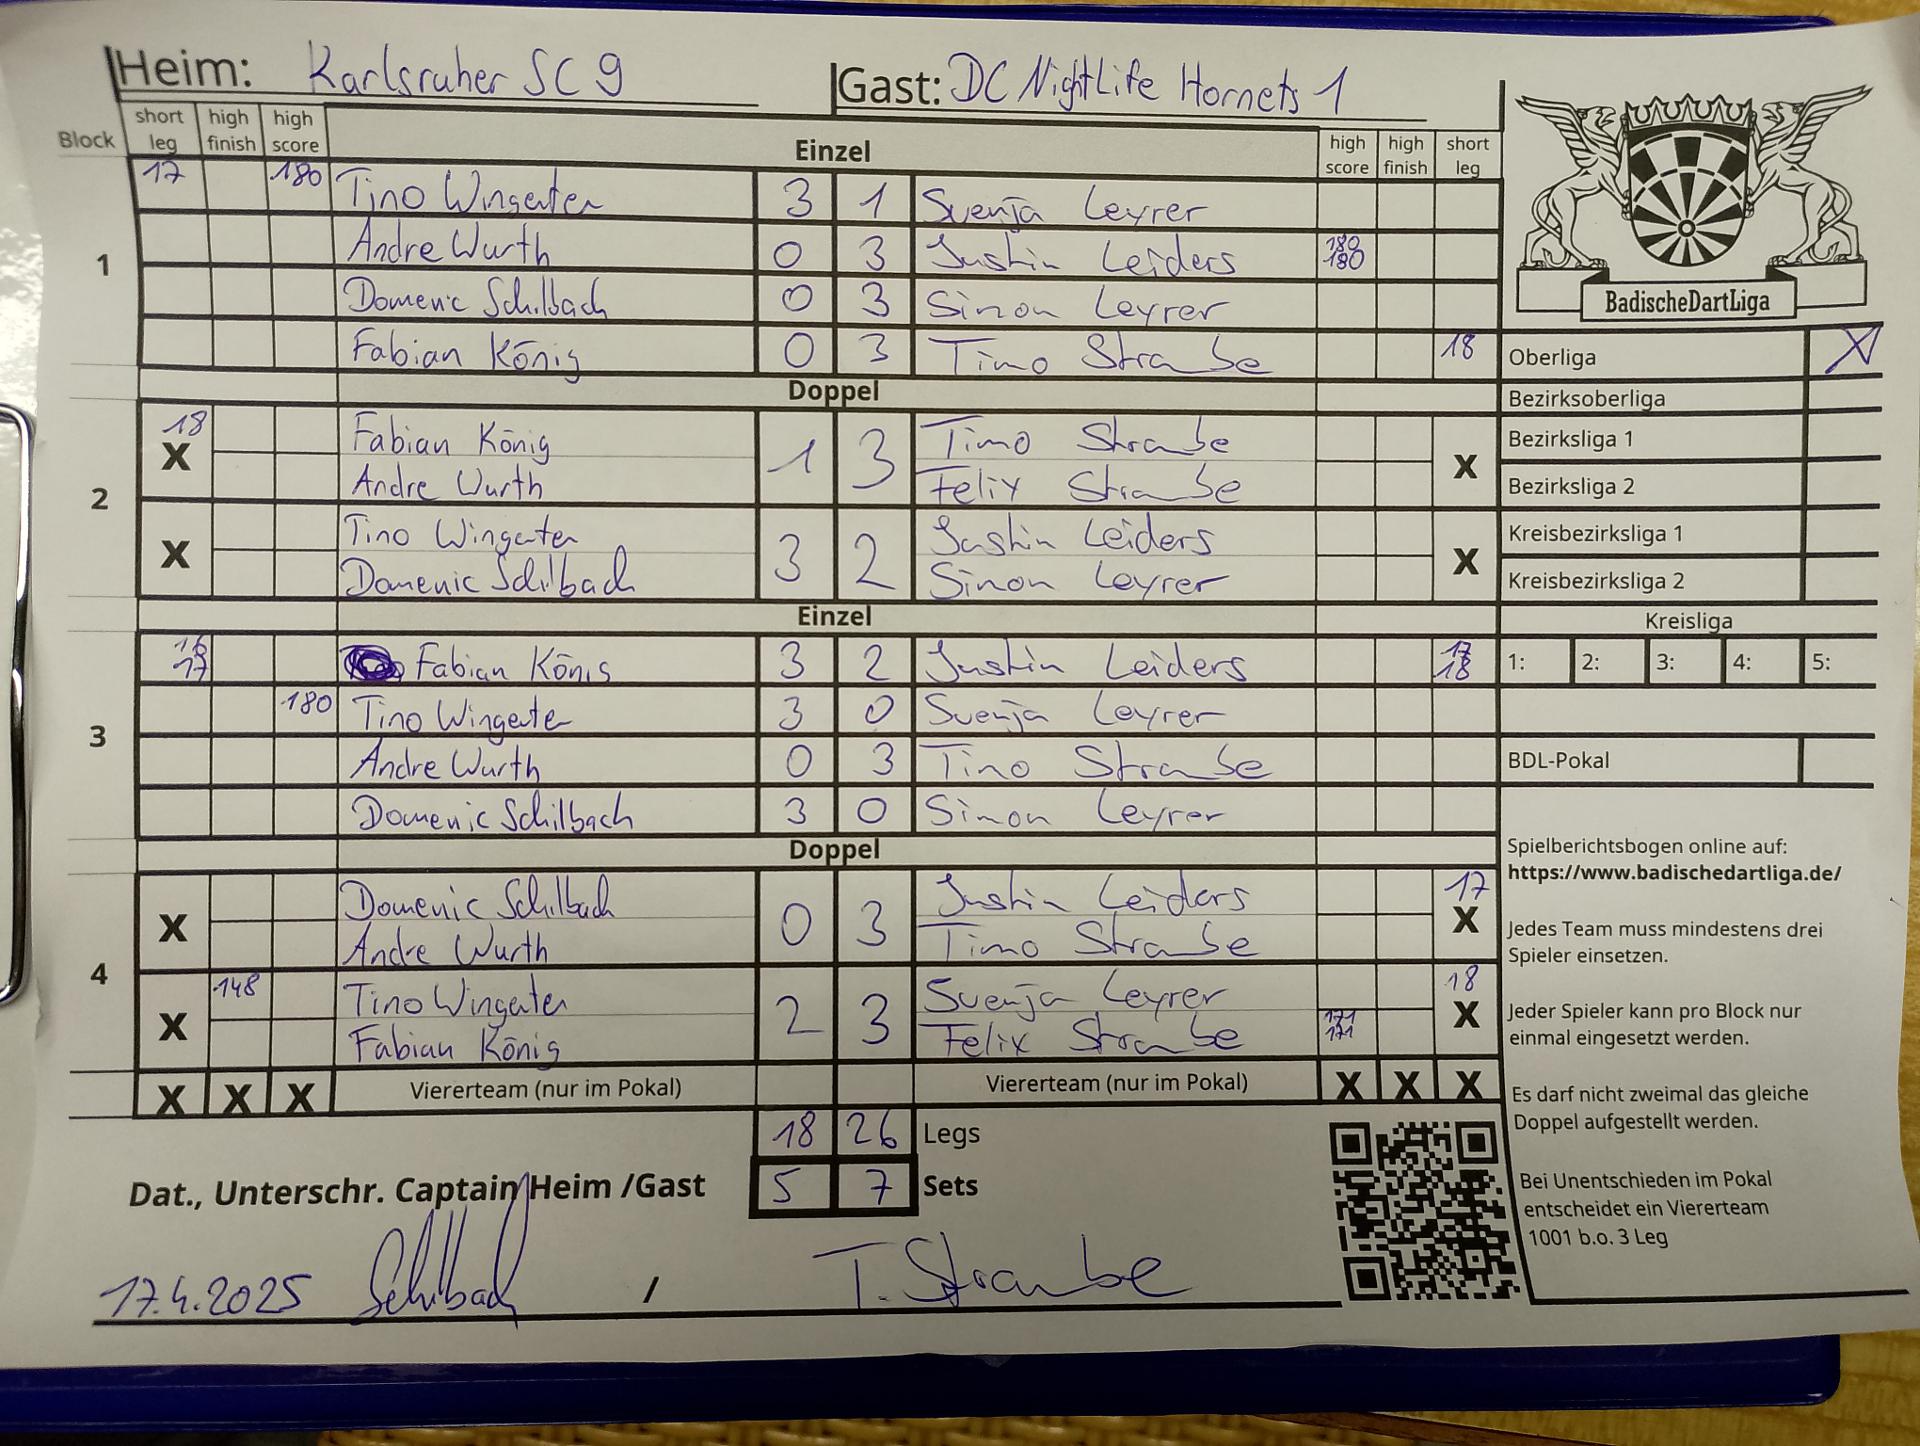 Heim: Karlsruher SC 9 Gast: DC NightLife Hornets 1
Block short leg high finish high score Einzel high score high finish short leg
1
17 180 Tino Wingerter 3 1 Svenja Leyrer
Andre Wurth 0 3 Justin Leiders 180 180
Domenic Schilbach 0 3 Simon Leyrer
Fabian König 0 3 Timo Straube 18
Doppel
2
18 X Fabian König 1 3 Timo Straube X
Andre Wurth Felix Straube
X Tino Wingerter 3 2 Justin Leiders X
Domenic Schilbach Simon Leyrer
Einzel
3
16 17 Fabian König 3 2 Justin Leiders 17 18
180 Tino Wingerter 3 0 Svenja Leyrer
Andre Wurth 0 3 Timo Straube
Domenic Schilbach 3 0 Simon Leyrer
Doppel
4
X Domenic Schilbach 0 3 Justin Leiders 17 X
Andre Wurth Timo Straube
X 148 Tino Wingerter 2 3 Svenja Leyrer 18 X
Fabian König Felix Straube 171 171
X X X Viererteam (nur im Pokal) Viererteam (nur im Pokal) X X X
18 26 Legs
5 7 Sets
Dat., Unterschr. Captain Heim /Gast
17.4.2025 Schilbach / T. Straube
BadischeDartLiga
Oberliga X
Bezirksoberliga
Bezirksliga 1
Bezirksliga 2
Kreisbezirksliga 1
Kreisbezirksliga 2
Kreisliga
1: 2: 3: 4: 5:
BDL-Pokal
Spielberichtsbogen online auf:
https://www.badischedartliga.de/
Jedes Team muss mindestens drei
Spieler einsetzen.
Jeder Spieler kann pro Block nur
einmal eingesetzt werden.
Es darf nicht zweimal das gleiche
Doppel aufgestellt werden.
Bei Unentschieden im Pokal
entscheidet ein Viererteam
1001 b.o. 3 Leg